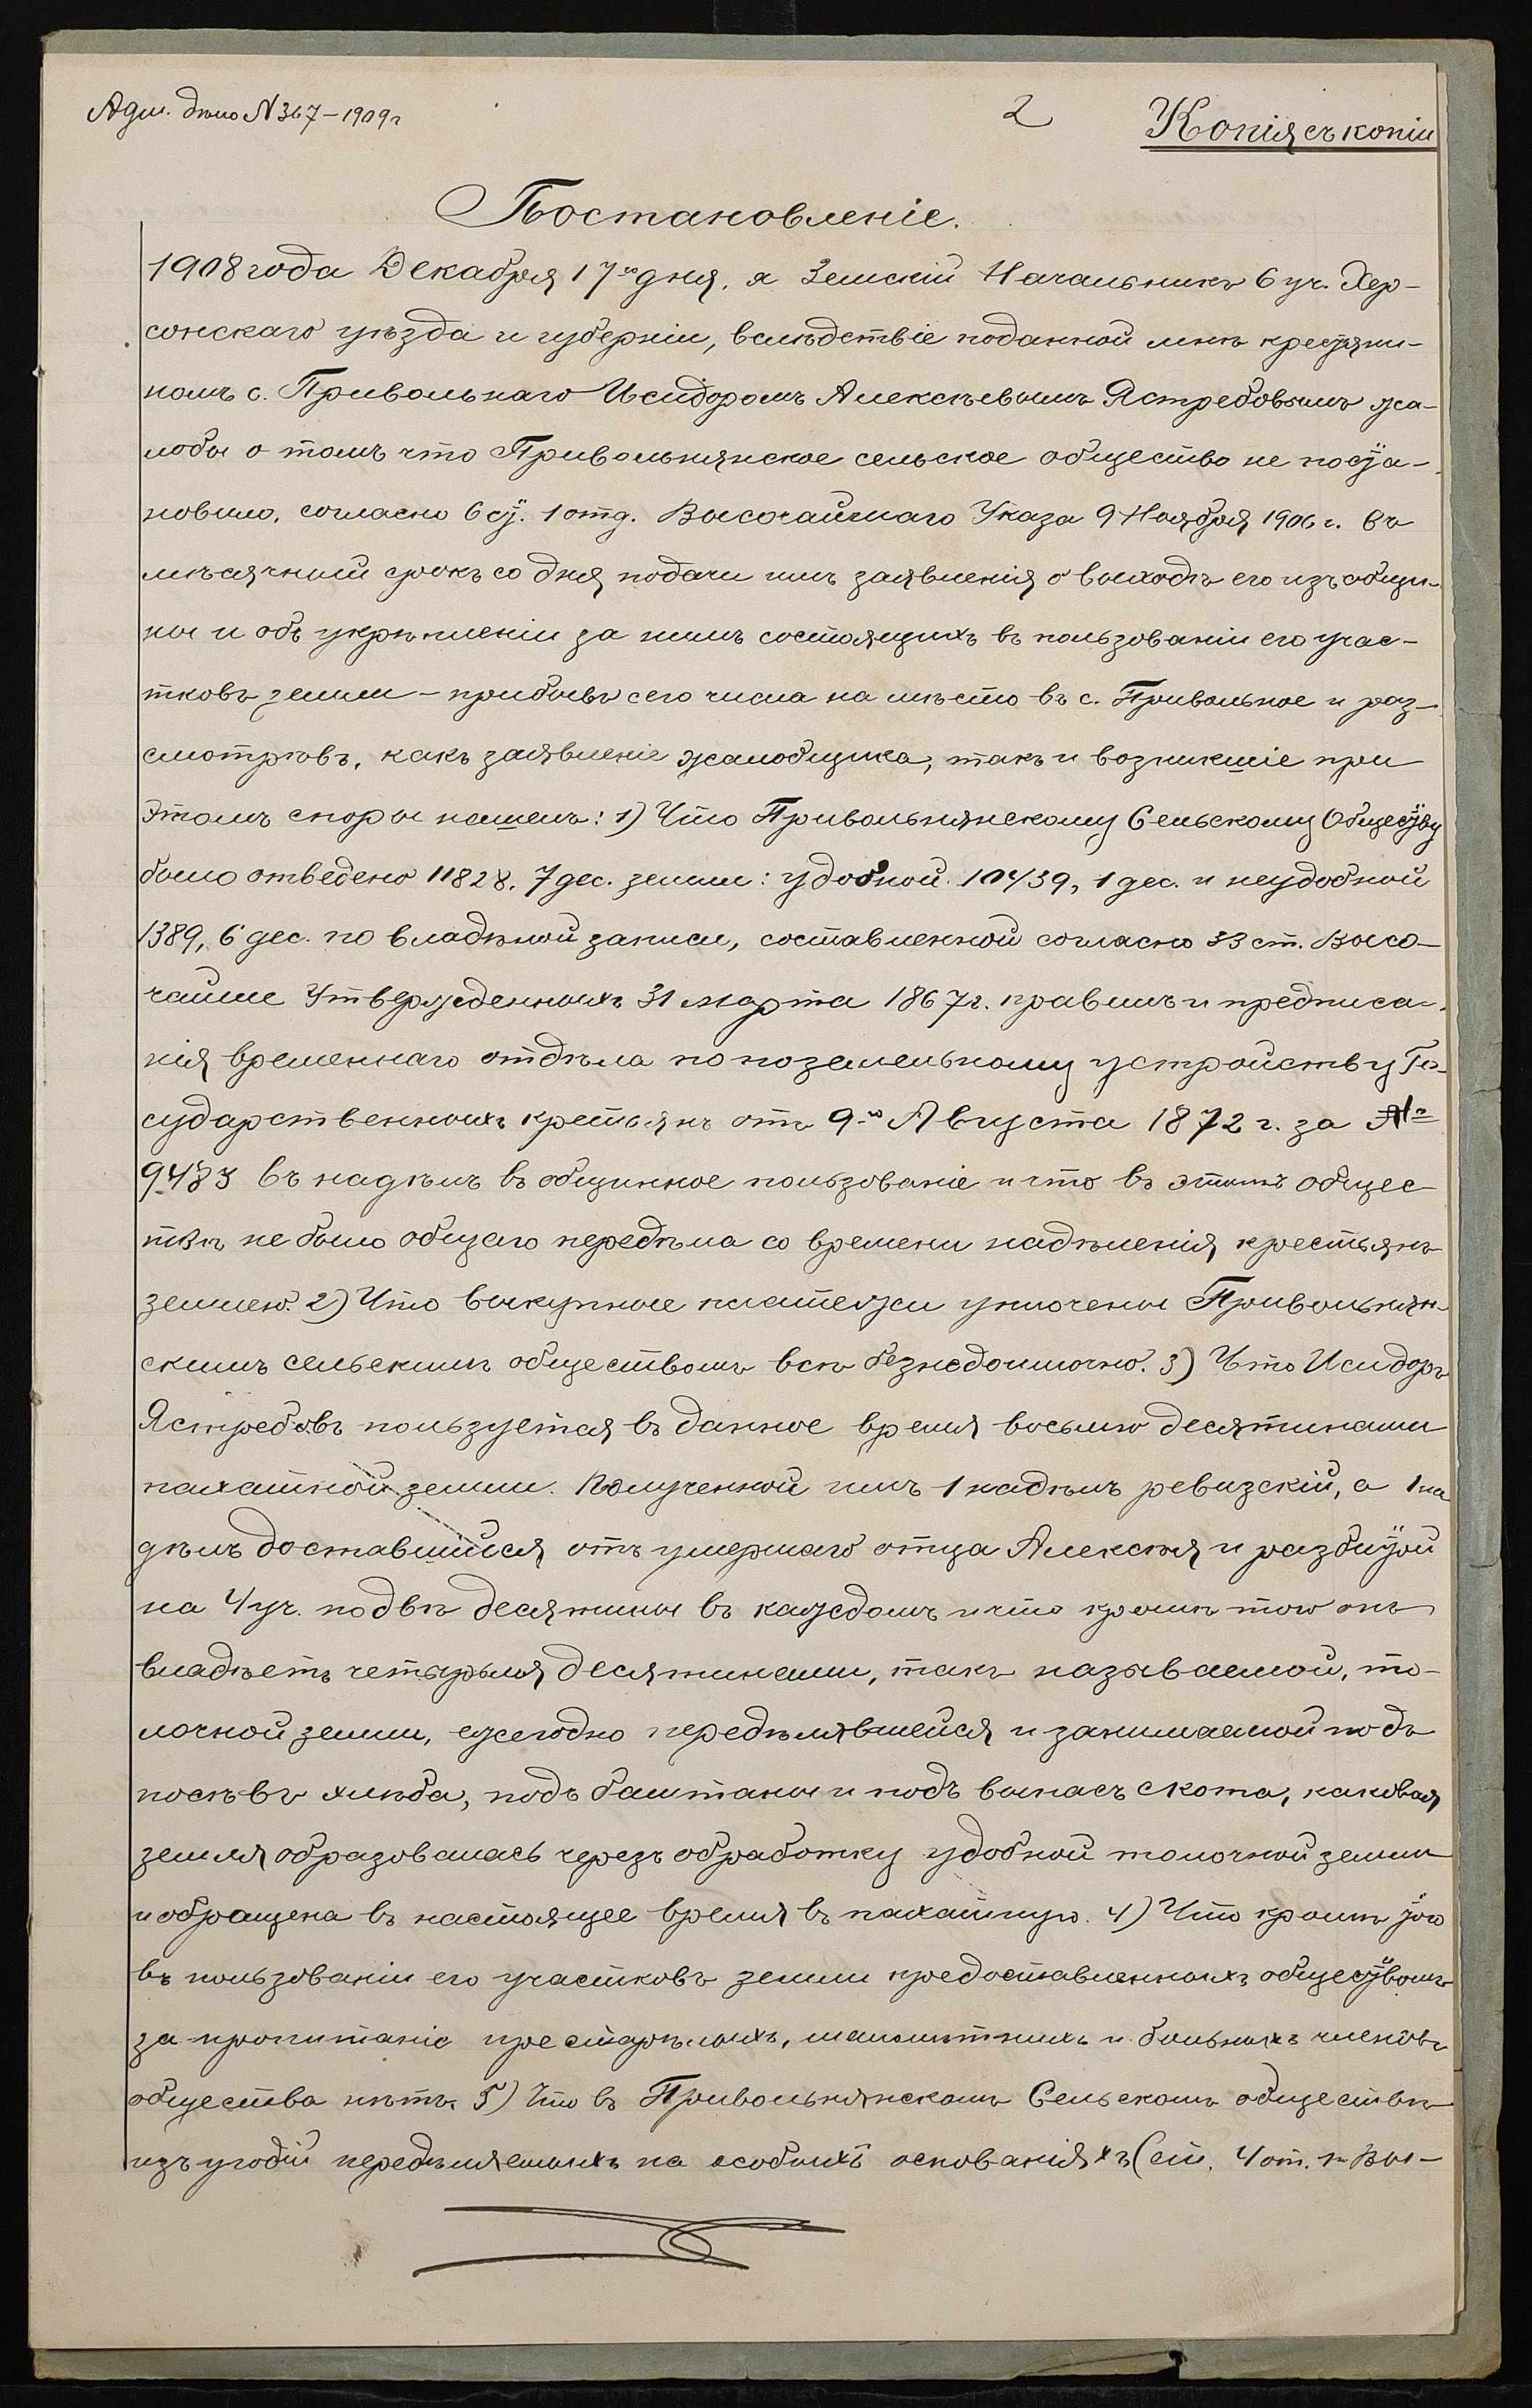 Адм. дѣло № 367 – 1909 г
2
Копія съ копіи
Постановленіе.
1908 года Декабря 17го дня, я Земскій Начальникъ 6 уч. Хер-
сонскаго уѣзда и губерніи, вслѣдствіе поданной мнѣ крестьяни-
номъ с. Привольнаго Исидоромъ Алексѣевымъ Ястребовымъ жа-
лобы о томъ что Привольнянское сельское общество не поста-
новило, согласно 6 ст. 1 отд. Высочайшаго Указа 9 Ноября 1906 г. въ
мѣсячный срокъ со дня подачи имъ заявленія о выходѣ его изъ общи-
ны и объ укрѣпленіи за нимъ состоящихъ въ пользованіи его учас-
тковъ земли – прибывъ сего числа на мѣсто въ с. Привольное и раз-
смотрѣвъ, какъ заявленіе жалобщика, такъ и возникшіе при
этомъ споры нашелъ: 1) Что Привольнянскому Сельскому Обществу
было отведено 11828,7 дес. земли: удобной 10439,1 дес. и неудобной
1389,6 дес. по владѣнной записи, составленной согласно 33 ст. Высо-
чайше Утвержденныхъ 31 марта 1867 г. правилъ и предписа-
нія временнаго отдѣла по поземельному устройству Го-
сударственныхъ крестьянъ отъ 9го Августа 1872 г. за №
9483 въ надѣлъ въ общинное пользованіе и что въ этомъ общес-
твѣ не было общаго передѣла со времени надѣленія крестьянъ
землею. 2) Что выкупные платежи уплочены Привольнян-
скимъ сельскимъ обществомъ всѣ безнедоимочно. 3) Что Исидоръ
Ястребовъ пользуется въ данное время восьмью десятинами
пахатной земли. Полученной имъ 1 надѣлъ ревизскій, а 1 на
дѣлъ доставшійся отъ умершаго отца Алексѣя и разбитой
на 4 уч. по двѣ десятины въ каждомъ и что кромѣ того онъ
владѣетъ четырьмя десятинами, такъ называемой, то-
лочной земли, ежегодно передѣлявшейся и занимаемой подъ
посѣвъ хлѣба, подъ баштаны и подъ выпасъ скота, каковая
земля образовалась черезъ обработку удобной толочной земли
и обращена въ настоящее время въ пахатную. 4) Что кромѣ того
въ пользованіи его участковъ земли предоставленныхъ обществомъ
за пропитаніе престарѣлыхъ, малолѣтнихъ и больныхъ членовъ
общества нѣтъ. 5) Что въ Привольнянскомъ Сельскомъ обществѣ
изъ угодій передѣляемыхъ на особыхъ основаніяхъ (ст. 4 от. 1 Вы-